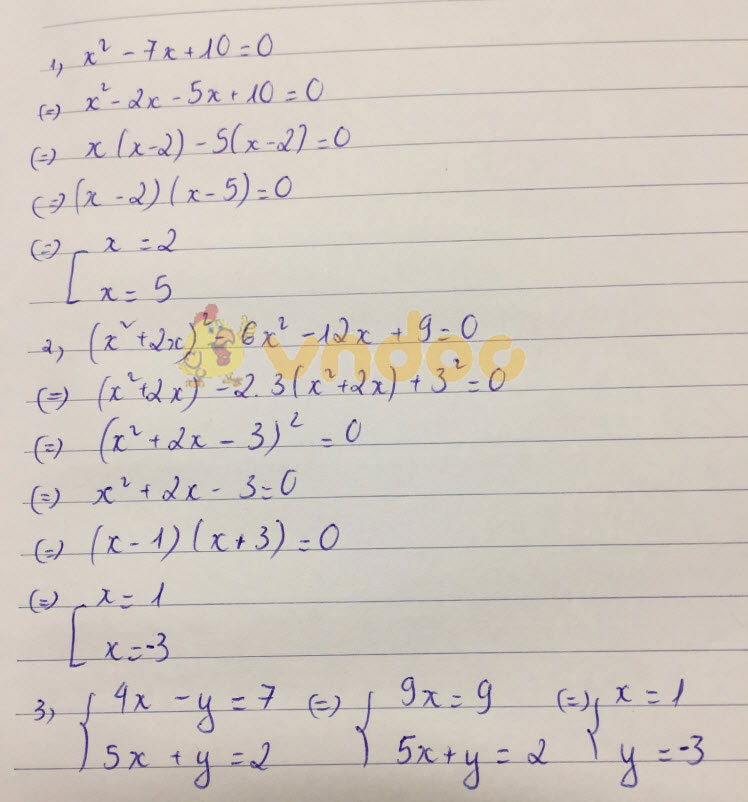 1, x² - 7x + 10 = 0
(=) x² - 2x - 5x + 10 = 0
(=) x(x-2) - 5(x-2) = 0
(=) (x - 2)(x - 5) = 0
(=) [ x = 2
x = 5
2, (x² + 2x)² - 6x² - 12x + 9 = 0
vndoc
(=) (x² + 2x)² - 2.3(x² + 2x) + 3² = 0
(=) (x² + 2x - 3)² = 0
(=) x² + 2x - 3 = 0
(=) (x - 1)(x + 3) = 0
(=) [ x = 1
x = -3
3, { 4x - y = 7 (=) { 9x = 9 (=) { x = 1
5x + y = 2 5x + y = 2 y = -3